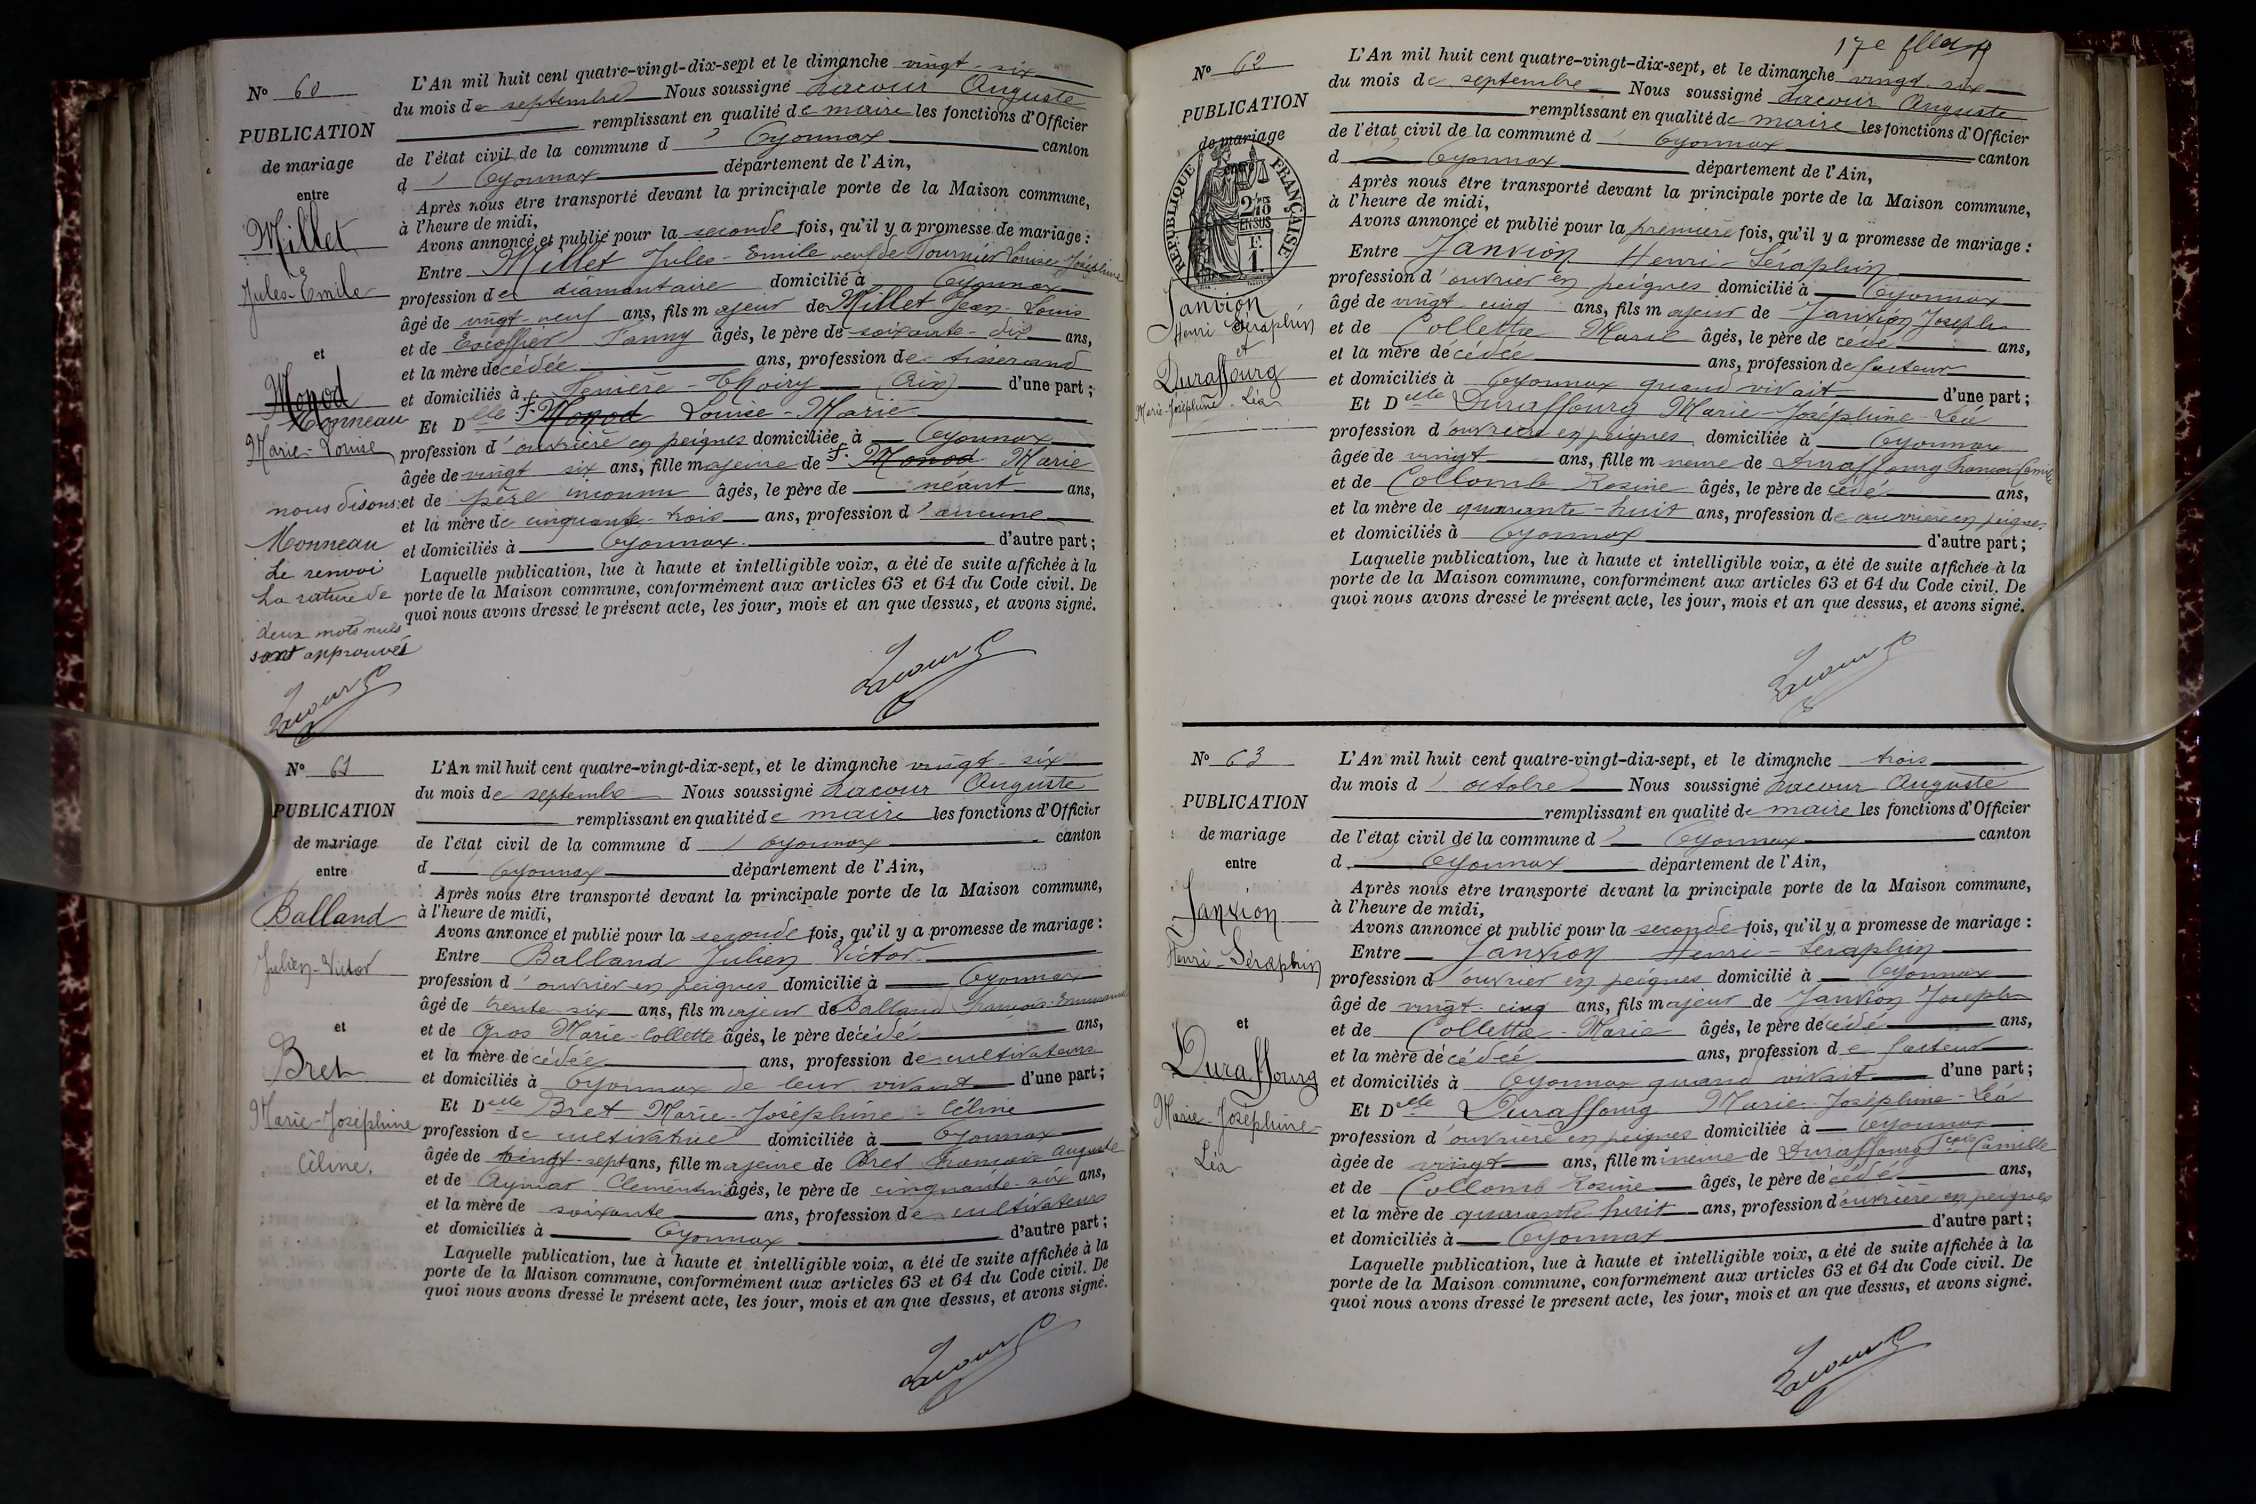 N° 60
PUBLICATION
de mariage
entre
Millet
Jules-Emile
et
Monod
Monneau
Marie-Louise
nous disons:
Monneau
Le renvoi
La rature de
deux mots nuls
sont approuvés
Lacour
L'An mil huit cent quatre-vingt-dix-sept et le dimanche vingt-six
du mois de septembre Nous soussigné Lacour Auguste
remplissant en qualité de maire les fonctions d'Officier
de l'état civil de la commune d' Oyonnax canton
d' Oyonnax département de l'Ain,
Après nous être transporté devant la principale porte de la Maison commune,
à l'heure de midi,
Avons annoncé et publié pour la seconde fois, qu'il y a promesse de mariage :
Entre Millet Jules-Emile veuf de Tournier Louise Joséphine
profession de diamantaire domicilié à Oyonnax
âgé de vingt-neuf ans, fils majeur de Millet Jean-Louis
et de Escoffier Fanny âgés, le père de soixante-dix ans,
et la mère décédée ans, profession de tisserand
et domiciliés à Thoiry (Ain) d'une part ;
Et Delle Monod Louise-Marie
profession d'ouvrière en peignes domiciliée à Oyonnax
âgée de vingt six ans, fille majeure de Monod Marie
et de père inconnu âgés, le père de néant ans,
et la mère de cinquante-trois ans, profession d'aucune
et domiciliés à Oyonnax d'autre part ;
Laquelle publication, lue à haute et intelligible voix, a été de suite affichée à la
porte de la Maison commune, conformément aux articles 63 et 64 du Code civil. De
quoi nous avons dressé le présent acte, les jour, mois et an que dessus, et avons signé.
Lacour
N° 61
PUBLICATION
de mariage
entre
Balland
Julien-Victor
et
Bret
Marie-Joséphine
Céline.
L'An mil huit cent quatre-vingt-dix-sept, et le dimanche vingt-six
du mois de septembre Nous soussigné Lacour Auguste
remplissant en qualité de maire les fonctions d'Officier
de l'état civil de la commune d' Oyonnax canton
d Oyonnax département de l'Ain,
Après nous être transporté devant la principale porte de la Maison commune,
à l'heure de midi,
Avons annoncé et publié pour la seconde fois, qu'il y a promesse de mariage :
Entre Balland Julien Victor
profession d'ouvrier en peignes domicilié à Oyonnax
âgé de trente six ans, fils majeur de Balland François-Emmanuel
et de Gros Marie-Collette âgés, le père décédé ans,
et la mère décédée ans, profession de cultivateurs
et domiciliés à Oyonnax de leur vivant d'une part ;
Et Delle Bret Marie-Joséphine Céline
profession de cultivatrice domiciliée à Oyonnax
âgée de vingt-sept ans, fille majeure de Bret François Auguste
et de Aymar Clémentine âgés, le père de cinquante-six ans,
et la mère de soixante ans, profession de cultivateurs
et domiciliés à Oyonnax d'autre part ;
Laquelle publication, lue à haute et intelligible voix, a été de suite affichée à la
porte de la Maison commune, conformément aux articles 63 et 64 du Code civil. De
quoi nous avons dressé le présent acte, les jour, mois et an que dessus, et avons signé.
Lacour
17e
N° 62
PUBLICATION
de mariage
entre
RÉPUBLIQUE FRANÇAISE
Janvion
Henri Séraphin
et
Duraffourg
Marie-Joséphine-Léa
L'An mil huit cent quatre-vingt-dix-sept, et le dimanche vingt six
du mois de septembre Nous soussigné Lacour Auguste
remplissant en qualité de maire les fonctions d'Officier
de l'état civil de la commune d' Oyonnax canton
d Oyonnax département de l'Ain,
Après nous être transporté devant la principale porte de la Maison commune,
à l'heure de midi,
Avons annoncé et publié pour la première fois, qu'il y a promesse de mariage :
Entre Janvion Henri-Séraphin
profession d'ouvrier en peignes domicilié à Oyonnax
âgé de vingt cinq ans, fils majeur de Janvion Joseph
et de Collette Marie âgés, le père de cédé ans,
et la mère décédée ans, profession de facteur
et domiciliés à Oyonnax quand vivait d'une part ;
Et Delle Duraffourg Marie-Joséphine-Léa
profession d'ouvrière en peignes domiciliée à Oyonnax
âgée de vingt ans, fille mineure de Duraffourg François Camille
et de Collomb Rosine âgés, le père de cédé ans,
et la mère de quarante-huit ans, profession de ouvrière en peignes
et domiciliés à Oyonnax d'autre part ;
Laquelle publication, lue à haute et intelligible voix, a été de suite affichée à la
porte de la Maison commune, conformément aux articles 63 et 64 du Code civil. De
quoi nous avons dressé le présent acte, les jour, mois et an que dessus, et avons signé.
Lacour
N° 63
PUBLICATION
de mariage
entre
Janvion
Henri-Séraphin
et
Duraffourg
Marie-Joséphine-
Léa
L'An mil huit cent quatre-vingt-dix-sept, et le dimanche trois
du mois d' octobre Nous soussigné Lacour Auguste
remplissant en qualité de maire les fonctions d'Officier
de l'état civil de la commune d' Oyonnax canton
d' Oyonnax département de l'Ain,
Après nous être transporté devant la principale porte de la Maison commune,
à l'heure de midi,
Avons annoncé et publié pour la seconde fois, qu'il y a promesse de mariage :
Entre Janvion Henri-Séraphin
profession d'ouvrier en peignes domicilié à Oyonnax
âgé de vingt-cinq ans, fils majeur de Janvion Joseph
et de Collette-Marie âgés, le père décédé ans,
et la mère décédée ans, profession de facteur
et domiciliés à Oyonnax quand vivait d'une part ;
Et Delle Duraffourg Marie-Joséphine-Léa
profession d'ouvrière en peignes domiciliée à Oyonnax
âgée de vingt ans, fille mineure de Duraffourg Fçois Camille
et de Collomb Rosine âgés, le père décédé ans,
et la mère de quarante huit ans, profession d'ouvrière en peignes
et domiciliés à Oyonnax d'autre part ;
Laquelle publication, lue à haute et intelligible voix, a été de suite affichée à la
porte de la Maison commune, conformément aux articles 63 et 64 du Code civil. De
quoi nous avons dressé le present acte, les jour, mois et an que dessus, et avons signé.
Lacour